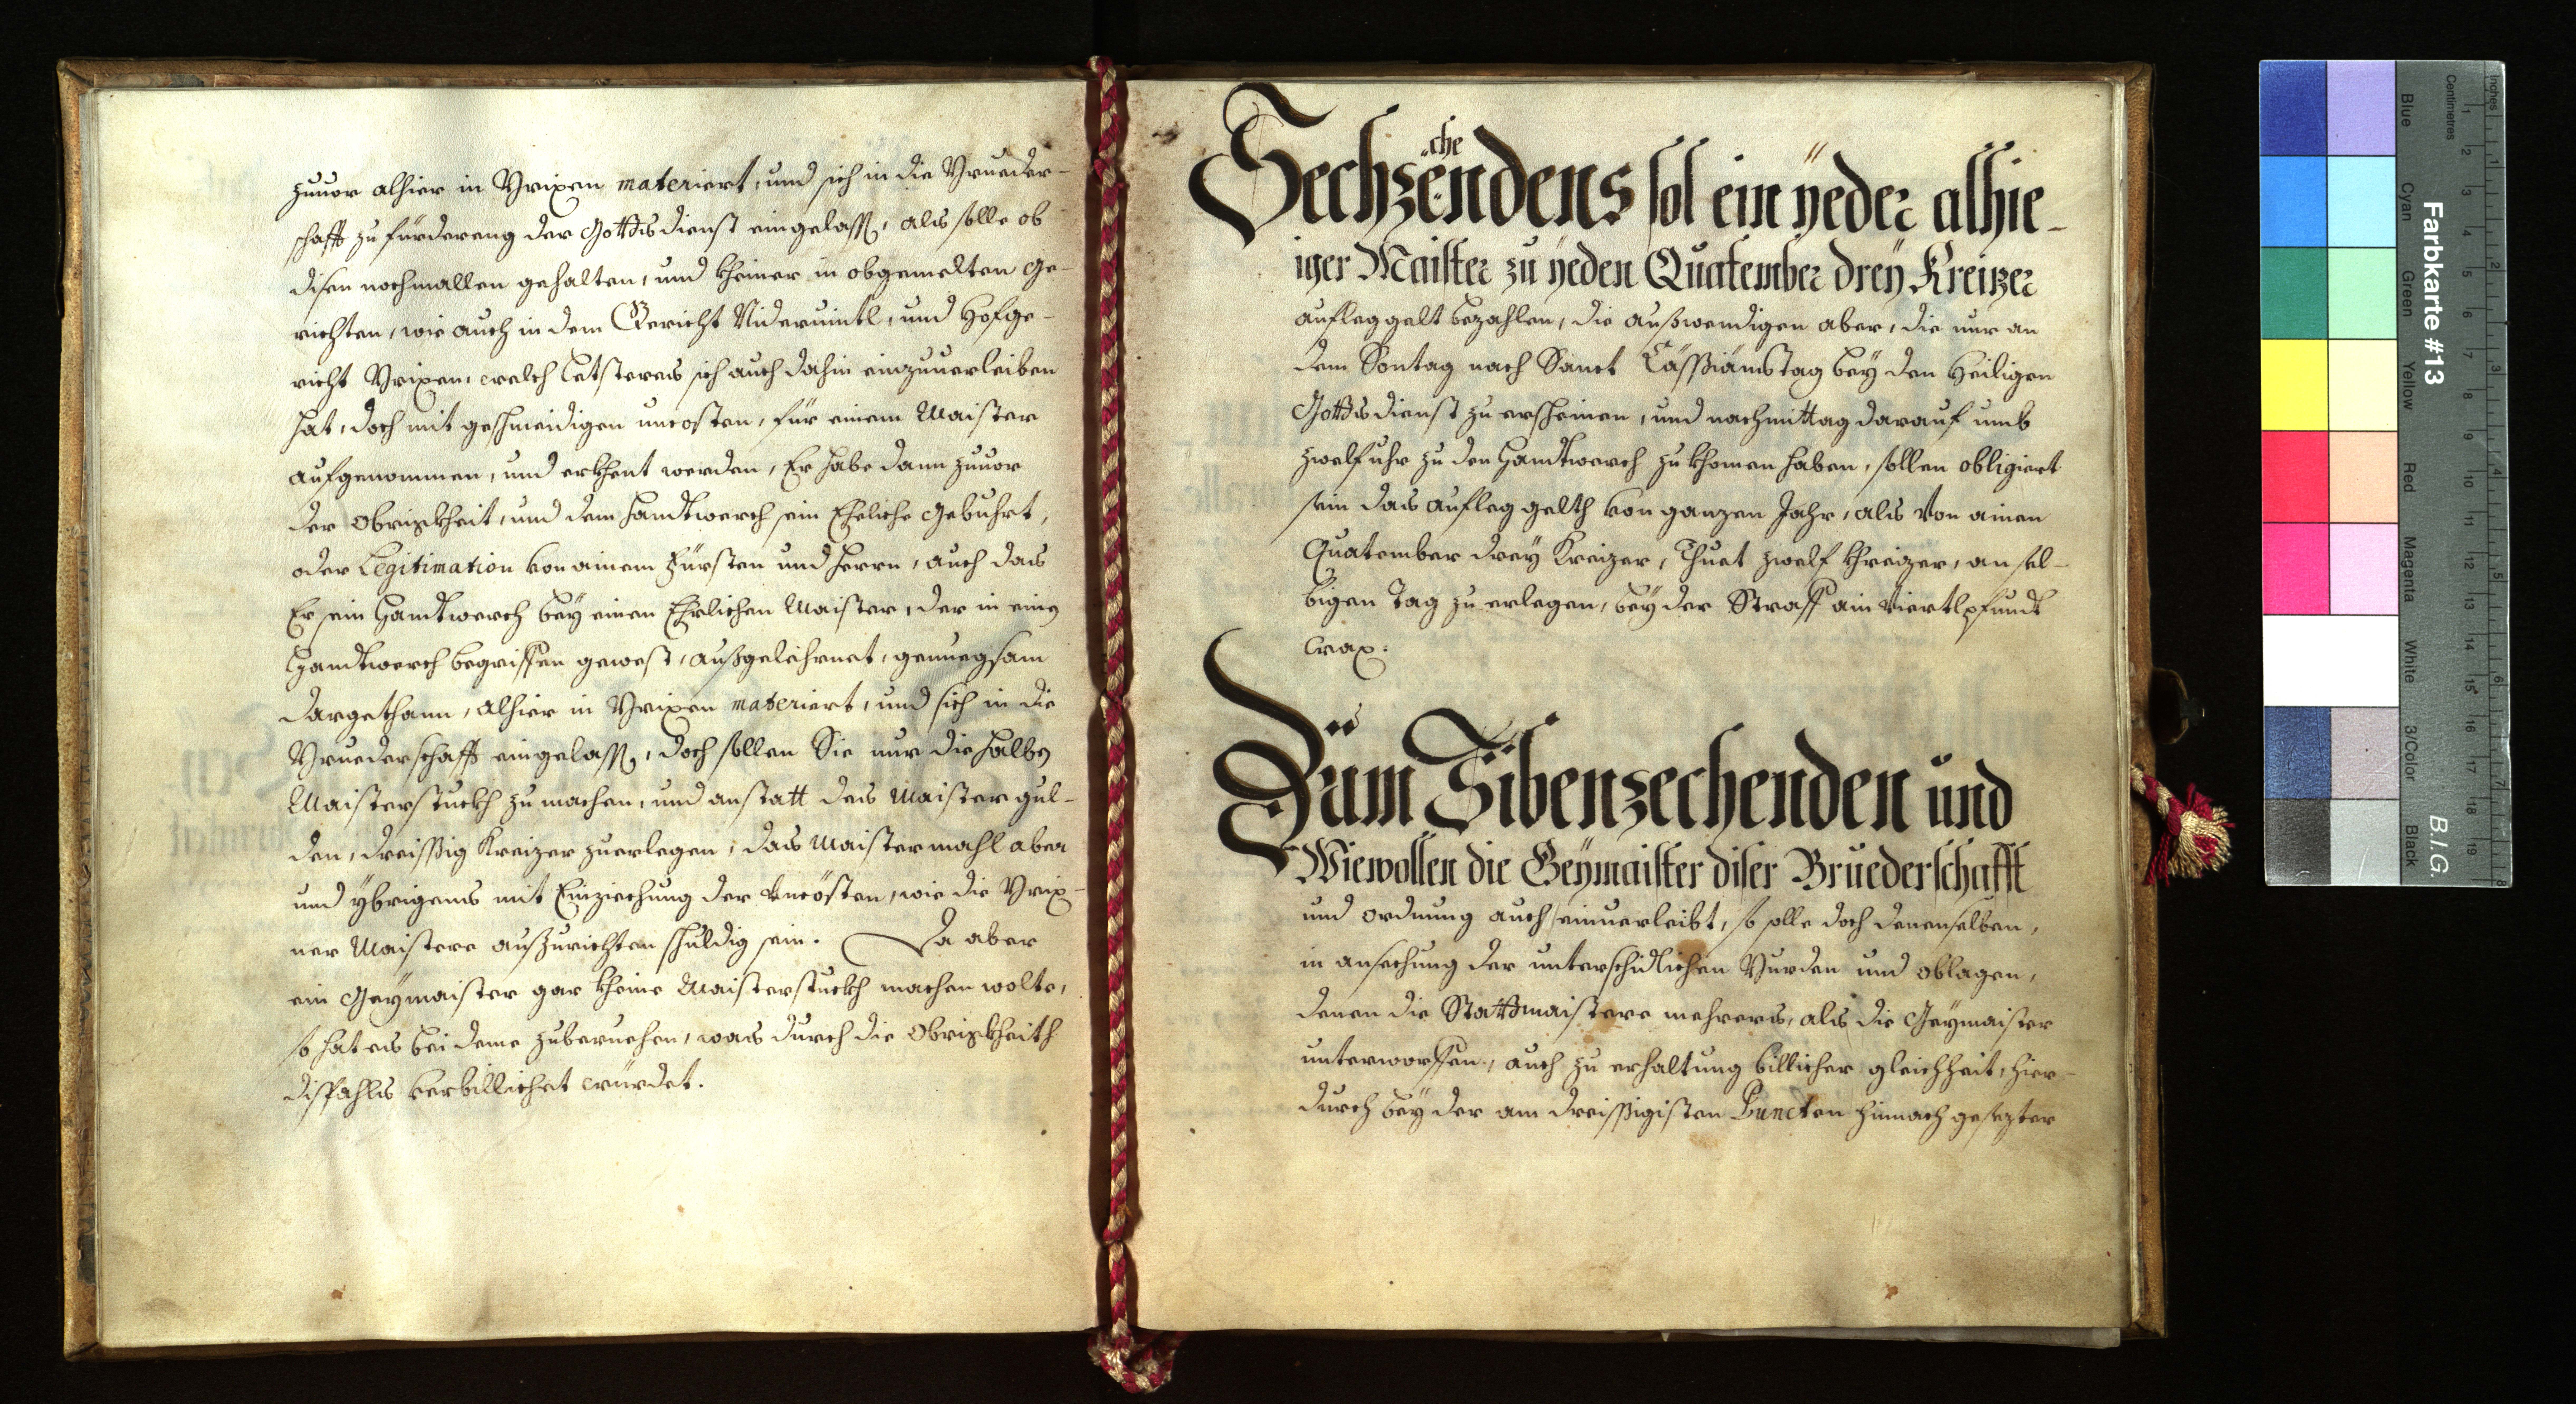 zuuor alhier in Brixen materiert, und sich in die Brueder-
schafft zu fürdereng der Gottsdienst eingelassen, als solle ob
disen nochmallen gehalten, und kheiner in obgemelten Ge-
richten, wie auch in dem Gericht Nideruintl, und Hofge-
richt Brixen, welch letsteres sich auch dahin einzuuerleiben
hat, doch mit geschmeidigen uncosten, für einem Maister
aufgenommen, und erkhent werden, Er habe dann zuuor
der Obrigkheit, und dem Handtwerch sein Eheliche Gebuhrt,
oder Legitimation von ainem Fürsten und Herrn, auch das
Er sein Handtwerch bey einen Ehrlichen Maister, der in einem
Handtwerch begriffen gewest, außgelehrnet, genuegsam
dargethann, alhier in Brixen materiert, und sich in die
Bruederschafft eingelassen, doch sollen Sie nur die halben
Maisterstuckh zu machen, und anstatt des Maister gul-
den, dreissig Kreizer zuerlegen, das Maistermahl aber
und ybrigens mit Einziechung der vncösten, wie die Brix-
ner Maistere außzurichten schuldig sein. Da aber
ein Geymaister gar kheine Maisterstuckh machen wolte,
so hat es bei deme zuberuehen, was durch die Obrigkheith
dißfahls verbillichet würdet.
Sechzechendens sol ein yeder alhie-
iger Maister zu yeden Quatember drey Kreizer
aufleggelt bezahlen, die außwendigen aber, die nur an
dem Sontag nach Sanct Cässiänstag bey den Heiligen
Gottsdienst zu erscheinen, und nachmittag darauf umb
zwelf uhr zu den Handtwerch zu khomen haben, sollen obligiert
sein das aufleg gelth von ganzen Jahr, als von ainen
Quatember drey Kreizer, Thuet zwelf khreizer, an sel-
bigen Tag zu erlegen, bey der Straff ain viertlpfundt
Wax.
Züm Sibenzechenden und
Wiewollen die Geymaister diser Bruederschafft
und ordnung auch einuerleibt, so solle doch denenselben,
in ansechung der unterschidlichen Burden und oblagen,
denen die Stattmaistere mehrers, als die Geymaister
unterworffen, auch zu erhaltung billicher gleichheit, hier-
durch bey der am dreissigisten Puncten hinnach gesezter
Farbkarte #13
B.I.G.
Blue
Cyan
Green
Yellow
Red
Magenta
White
3/Color
Black
Centimetres
Inches
1 2 3 4 5 6 7 8 9 10 11 12 13 14 15 16 17 18 19
1 2 3 4 5 6 7 8